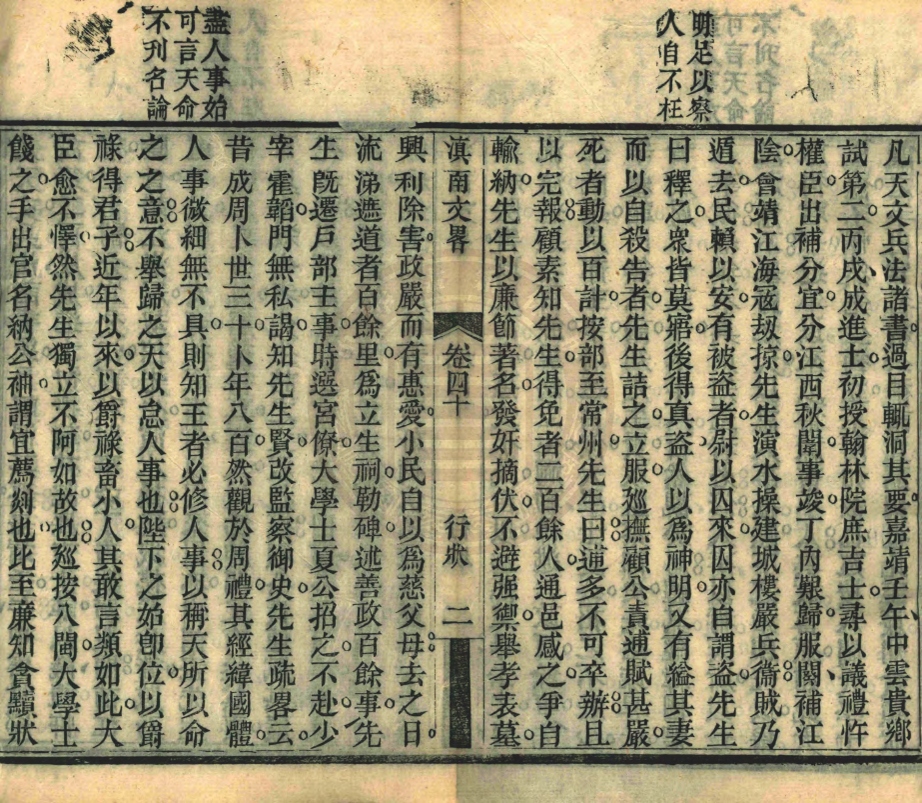 明足以察
人自不枉
凡天文兵法諸書過目輒洞其要嘉靖壬午中雲貴鄉
試第二丙戌成進士初授翰林院庶吉士尋以議禮忤
權臣出補分宜分江西秋闈事竣丁內艱歸服闋補江
陰會靖江海寇刼掠先生演水操建城樓嚴兵衞賊乃
遁去民賴以安有被盜者尉以囚來囚亦自謂盜先生
曰釋之衆皆莫窮後得真盜人以爲神明又有縊其妻
而以自殺告者先生詰之立服廵撫顧公責逋賦甚嚴
死者動以百計按部至常州先生曰逋多不可卒辦且
以完報顧素知先生得免者二百餘人通邑感之爭自
輸納先生以廉節著名發奸摘伏不避强禦舉孝表墓
滇南文畧
卷四十
行狀
二
盡人事始
可言天命
不刋名論
興利除害政嚴而有惠愛小民自以爲慈父母去之日
流涕遮道者百餘里爲立生祠勒碑述善政百餘事先
生旣遷戶部主事時選宮僚大學士夏公招之不赴少
宰霍韜門無私謁知先生賢改監察御史先生疏畧云
昔成周卜世三十卜年八百然觀於周禮其經緯國體
人事微細無不具則知王者必修人事以稱天所以命
之之意不舉歸之天以怠人事也陛下之始卽位以爵
祿得君子近年以來以爵祿畜小人其敢言類如此大
臣愈不懌然先生獨立不阿如故也廵按八閩大學士
餞之手出官名納公神謂宜薦剡也比至廉知貪黷狀